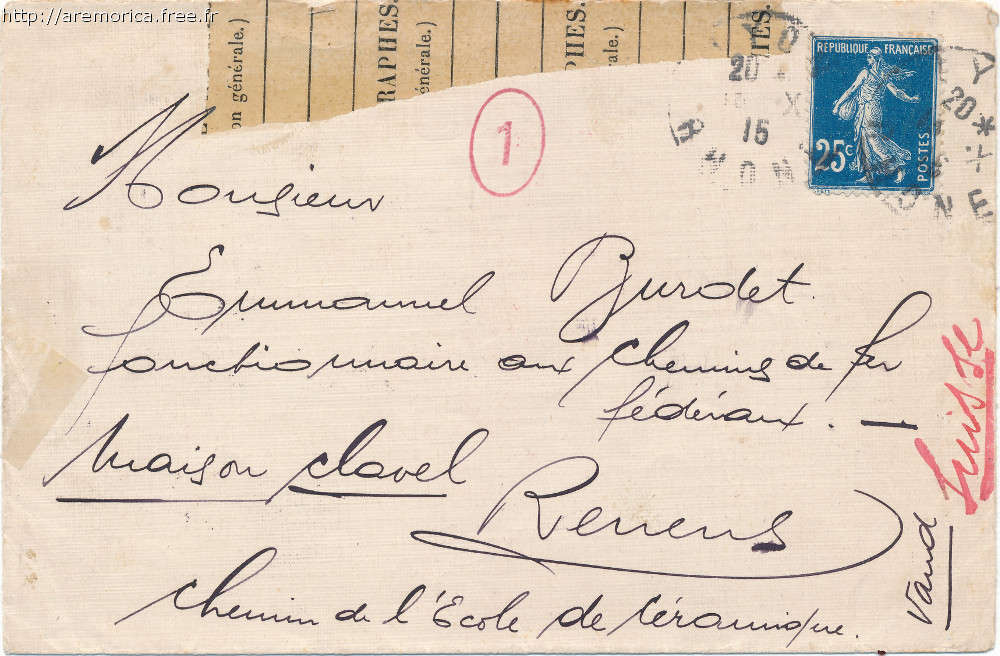 http://aremorica.free.fr
on générale.)
RAPHES.
énérale.)
PHES.
énérale.)
HES.
1
20
X
15
RHONE
20 *
RÉPUBLIQUE FRANÇAISE
25c
POSTES
Monsieur
Emmanuel Burdet.
fonctionnaire aux chemins de fer
fédéraux. —
Maison Clavel
Renens
Vaud
Suisse
Chemin de l'Ecole de Céramique.